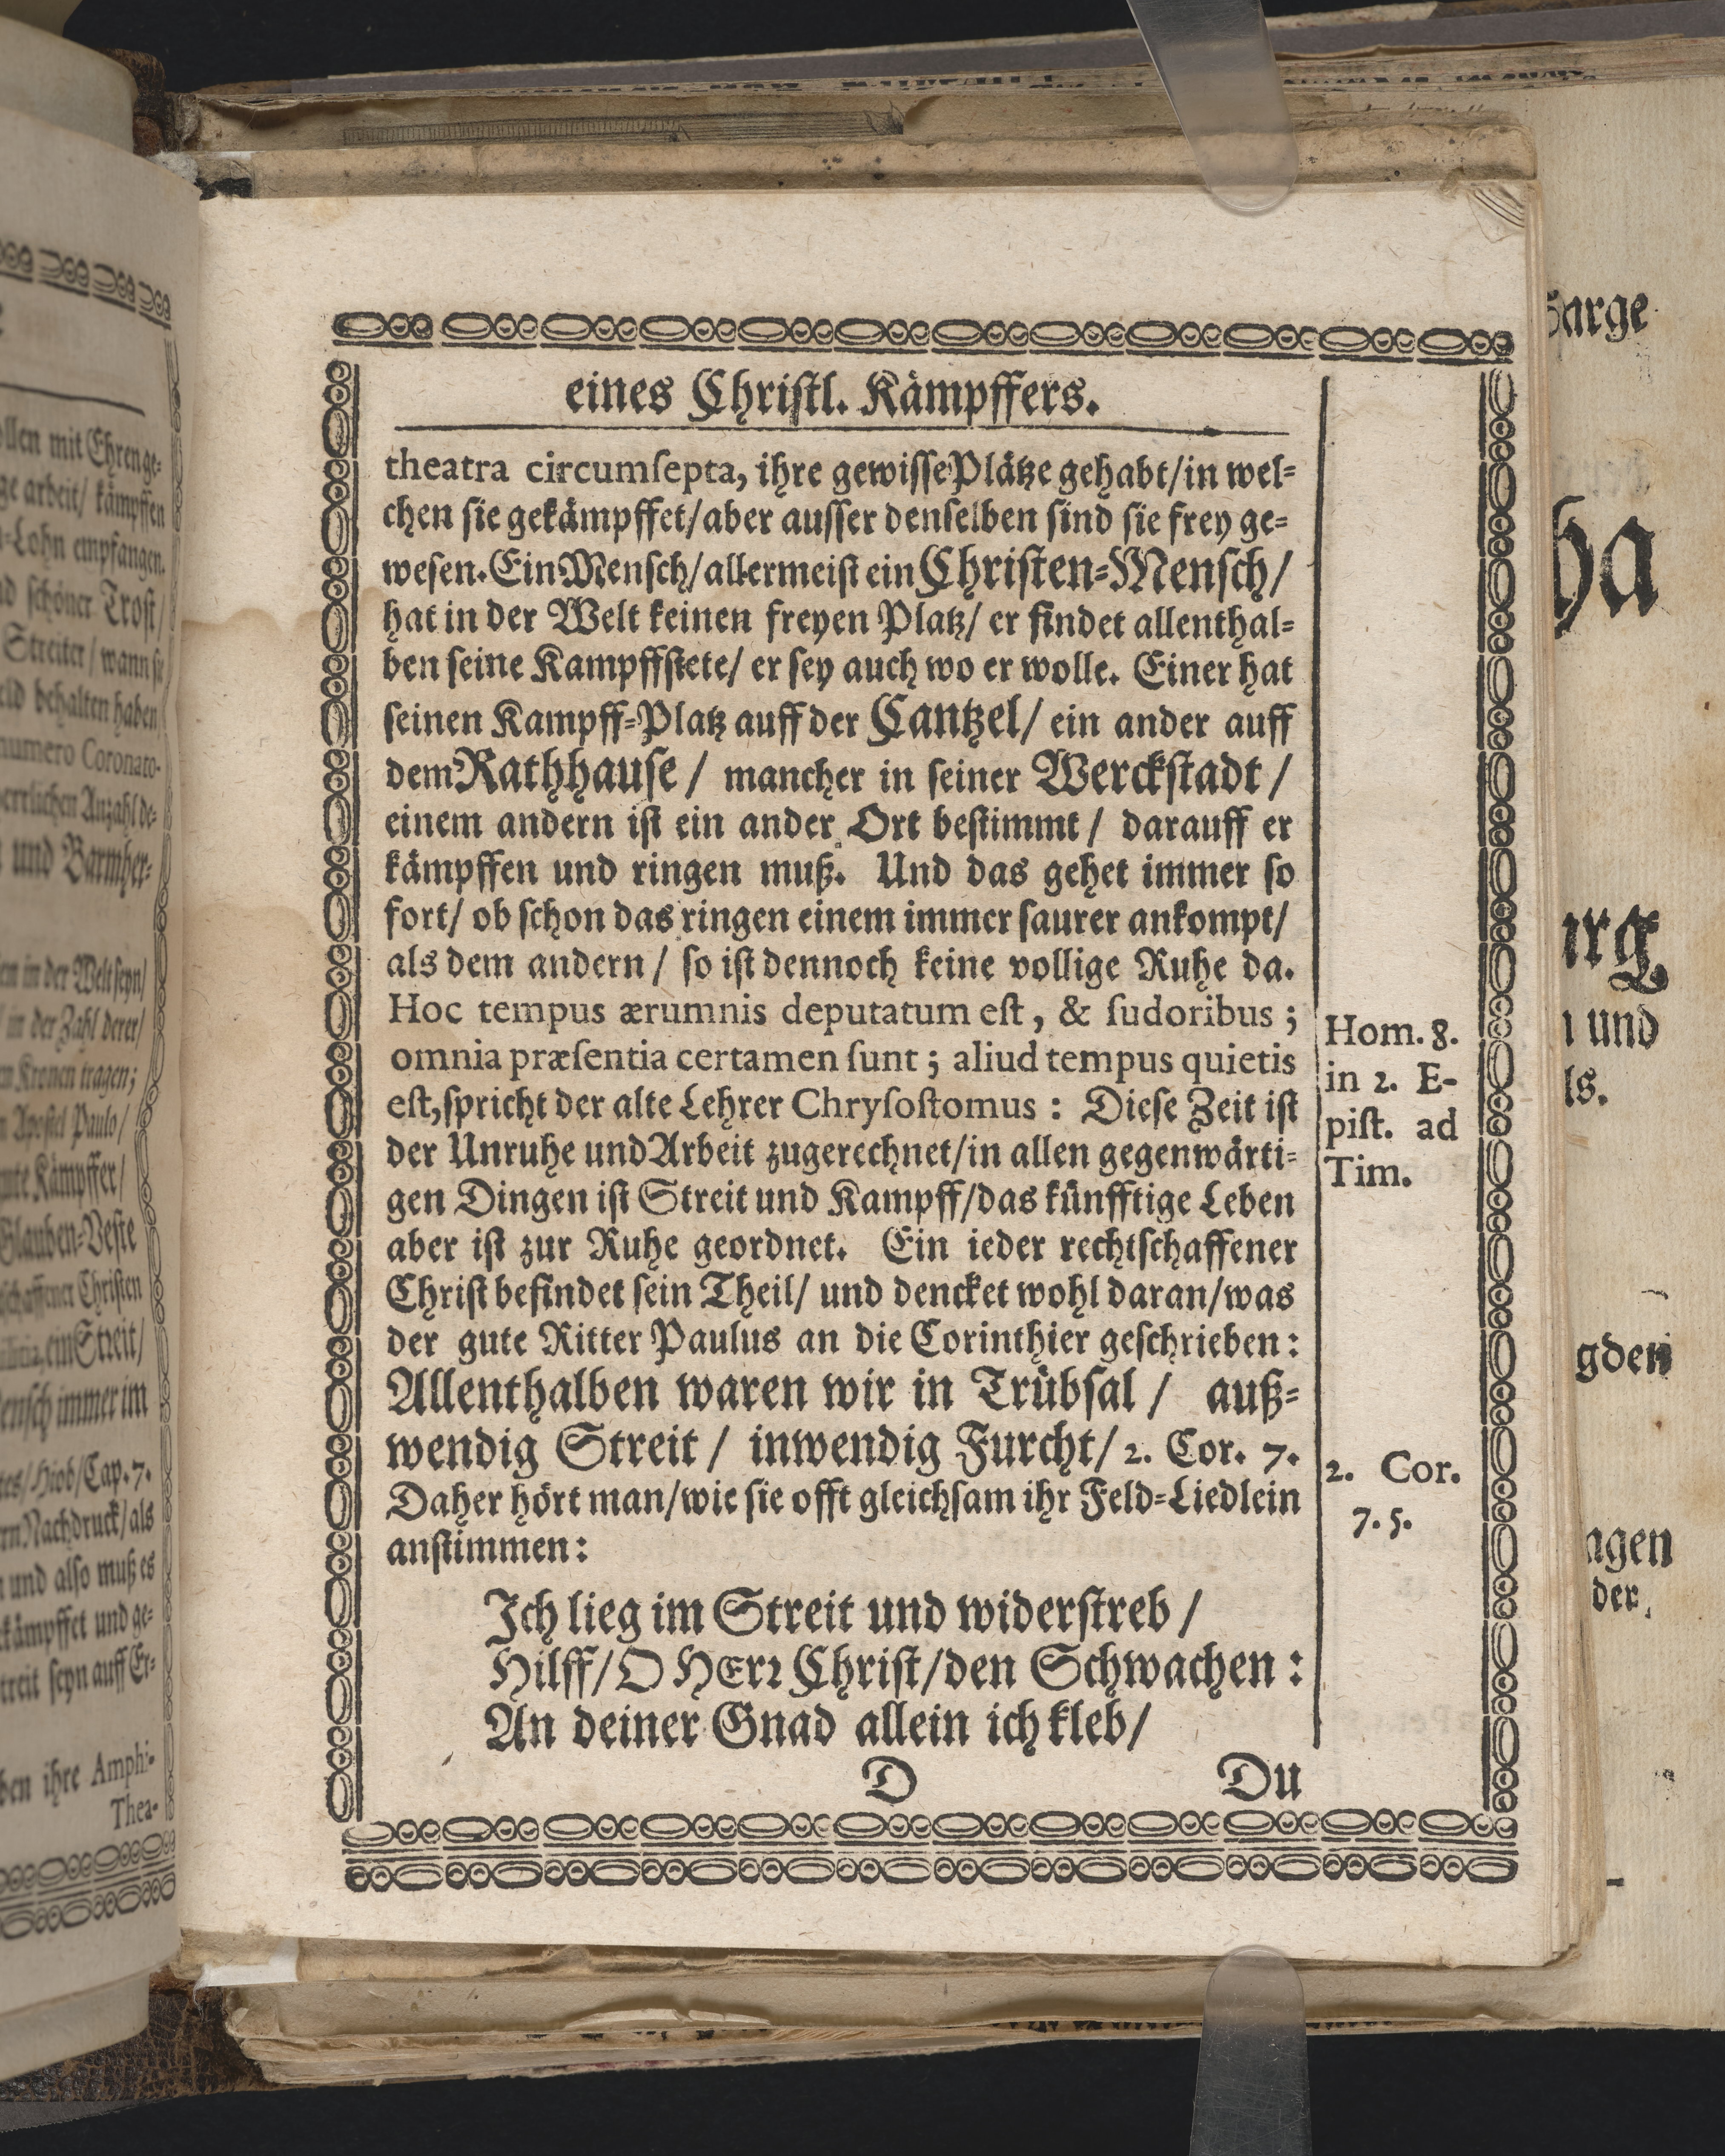 eines Chriſtl. Kämpffers.
theatra circumſepta, ihre gewiſſe Plätze gehabt/in wel⸗
chen ſie gekämpffet/aber auſſer denſelben ſind ſie frey ge⸗
weſen. Ein Menſch/allermeiſt ein Chriſten⸗Menſch/
hat in der Welt keinen freyen Platz/ er findet allenthal⸗
ben ſeine Kampffſtete/ er ſey auch wo er wolle. Einer hat
ſeinen Kampff⸗Platz auff der Cantzel/ ein ander auff
dem Rathhauſe / mancher in ſeiner Werckſtadt /
einem andern iſt ein ander Ort beſtimmt / darauff er
kämpffen und ringen muß. Und das gehet immer ſo
fort/ ob ſchon das ringen einem immer ſaurer ankompt/
als dem andern / ſo iſt dennoch keine vollige Ruhe da.
Hoc tempus ærumnis deputatum eſt, & ſudoribus ;
omnia præſentia certamen ſunt ; aliud tempus quietis
eſt, ſpricht der alte Lehrer Chryſoſtomus : Dieſe Zeit iſt
der Unruhe und Arbeit zugerechnet/in allen gegenwärti⸗
gen Dingen iſt Streit und Kampff/das künfftige Leben
aber iſt zur Ruhe geordnet. Ein ieder rechtſchaffener
Chriſt befindet ſein Theil/ und dencket wohl daran/was
der gute Ritter Paulus an die Corinthier geſchrieben:
Allenthalben waren wir in Trübſal / auß⸗
wendig Streit / inwendig Furcht/ 2. Cor. 7.
Daher hört man/wie ſie offt gleichſam ihr Feld⸗Liedlein
anſtimmen:
Ich lieg im Streit und widerſtreb /
Hilff/O HErꝛ Chriſt/den Schwachen :
An deiner Gnad allein ich kleb/
D Du
Hom. 8.
in 2. E-
piſt. ad
Tim.
2. Cor.
7. 5.